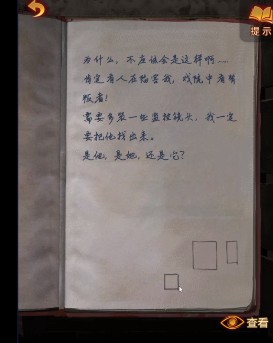 提示
为什么,不应该会是这样啊...
肯定有人在陷害我,戏院中有背
叛者!
需要多装一些监控镜头,我一定
要把他找出来。
是他,是她,还是它?
查看